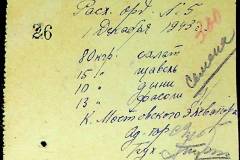 Расх. орд. № 5
1 декабря 1943 г.
26
80 кор. салат
15 " щавель
10 " дыни
13 " фасоли
семена
К. Мостовского Элеватора